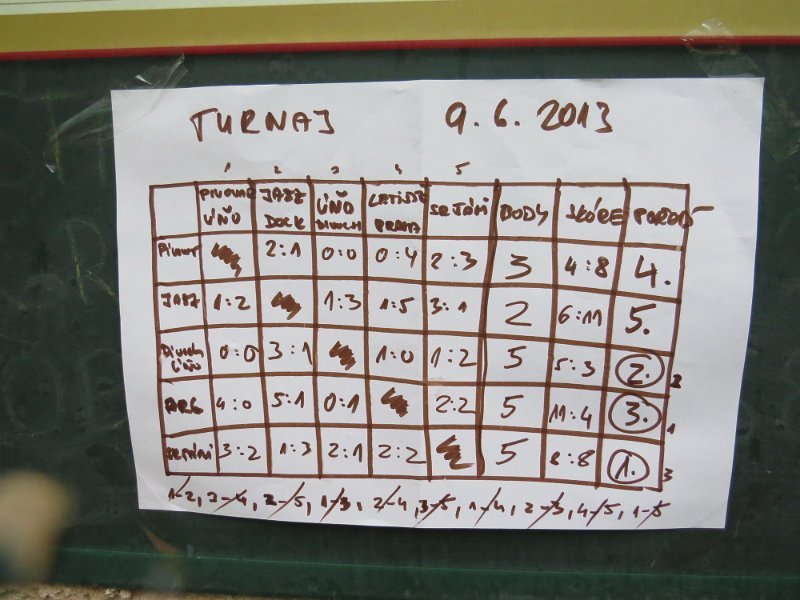 TURNAJ 9. 6. 2013
1 2 3 4 5
PIVOVAR LÍŇO JAZZ DOCK LÍŇO DIVOCH PRAHA SRTÁNI BODY SKÓRE POŘADÍ
PIVOVAR 2:1 0:0 0:4 2:3 3 4:8 4.
JAZZ 1:2 1:3 1:5 3:1 2 6:11 5.
DIVOCH LÍŇO 0:0 3:1 1:0 1:2 5 5:3 2. 2
ARG 4:0 5:1 0:1 2:2 5 11:4 3. 1
SRTÁNI 3:2 1:3 2:1 2:2 5 8:8 1. 3
1-2, 3-4, 2-5, 1-3, 2-4, 3-5, 1-4, 2-3, 4-5, 1-5